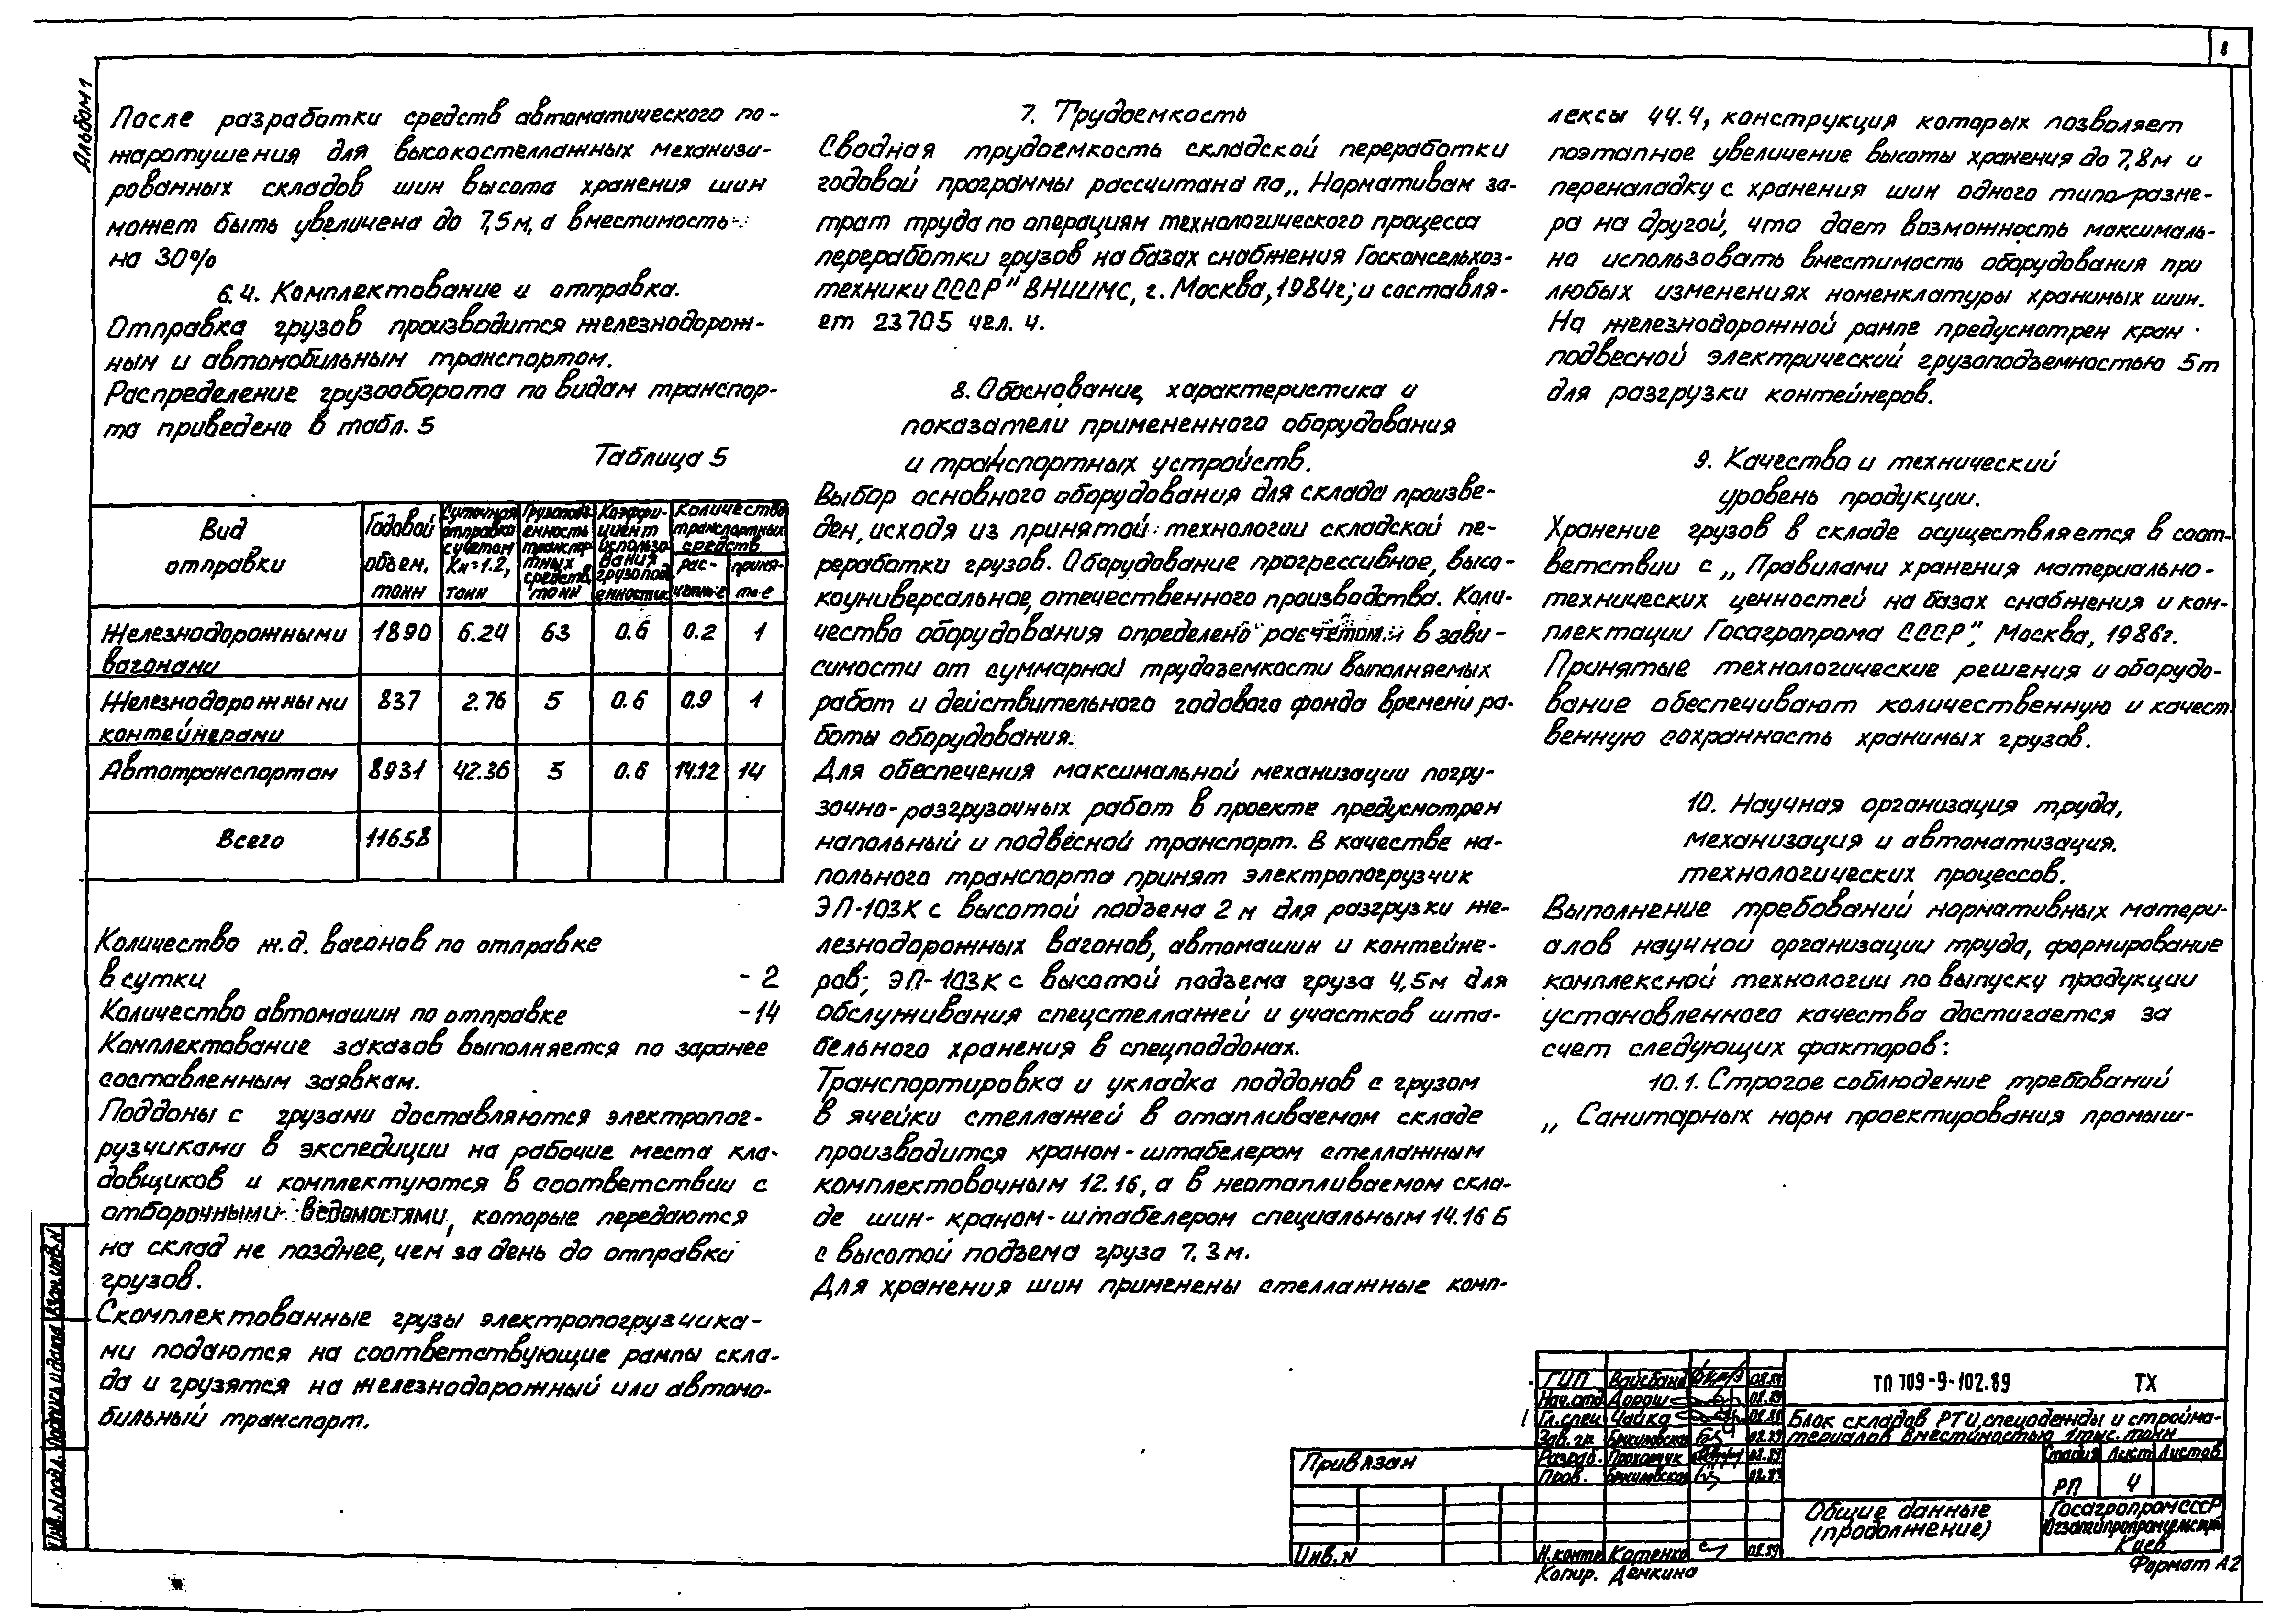 8
Альбом 1
После разработки средств автоматического по-
жаротушения для высокостеллажных механизи-
рованных складов шин высота хранения шин
может быть увеличена до 7,5м, а вместимость
на 30%
6.4. Комплектование и отправка.
Отправка грузов производится железнодорож-
ным и автомобильным транспортом.
Распределение грузооборота по видам транспор-
та приведено в табл. 5
Таблица 5
Вид отправки | Годовой объем, тонн | Суточная отправка с учетом Кн=1.2, тонн | Грузоподъемность транспортных средств, тонн | Коэффициент использования грузоподъемности | Количество транспортных средств: расчетные | принятые
Железнодорожными вагонами | 1890 | 6.24 | 63 | 0.6 | 0.2 | 1
Железнодорожными контейнерами | 837 | 2.76 | 5 | 0.6 | 0.9 | 1
Автотранспортом | 8931 | 42.36 | 5 | 0.6 | 14.12 | 14
Всего | 11658
Количество ж.д. вагонов по отправке
в сутки - 2
Количество автомашин по отправке -14
Комплектование заказов выполняется по заранее
составленным заявкам.
Поддоны с грузами доставляются электропог-
рузчиками в экспедиции на рабочие места кла-
довщиков и комплектуются в соответствии с
отборочными ведомостями, которые передаются
на склад не позднее, чем за день до отправки
грузов.
Скомплектованные грузы электропогрузчика-
ми подаются на соответствующие рампы скла-
да и грузятся на железнодорожный или автомо-
бильный транспорт.
7. Трудоемкость
Сводная трудоемкость складской переработки
годовой программы рассчитана по „Нормативам за-
трат труда по операциям технологического процесса
переработки грузов на базах снабжения Госкомсельхоз-
техники СССР" ВНИИМС, г. Москва, 1984г; и составля-
ет 23705 чел. ч.
8. Обоснование, характеристика и
показатели примененного оборудования
и транспортных устройств.
Выбор основного оборудования для склада произве-
ден, исходя из принятой технологии складской пе-
реработки грузов. Оборудование прогрессивное, высо-
коуниверсальное, отечественного производства. Коли-
чество оборудования определено расчетом в зави-
симости от суммарной трудоземкости выполняемых
работ и действительного годового фонда времени ра-
боты оборудования.
Для обеспечения максимальной механизации погру-
зочно-разгрузочных работ в проекте предусмотрен
напольный и подвесной транспорт. В качестве на-
польного транспорта принят электропогрузчик
ЭП-103К с высотой подъема 2 м для разгрузки же-
лезнодорожных вагонов, автомашин и контейне-
ров; ЭП-103К с высотой подъема груза 4,5м для
обслуживания спецстеллажей и участков шта-
бельного хранения в спецподдонах.
Транспортировка и укладка поддонов с грузом
в ячейки стеллажей в отапливаемом складе
производится краном-штабелером стеллажным
комплектовочным 12.16, а в неотапливаемом скла-
де шин- краном-штабелером специальным 14.16 Б
с высотой подъема груза 7.3м.
Для хранения шин применены стеллажные комп-
лексы 44.4, конструкция которых позволяет
поэтапное увеличение высоты хранения до 7,8м и
переналадку с хранения шин одного типо-разме-
ра на другой, что дает возможность максималь-
но использовать вместимость оборудования при
любых изменениях номенклатуры хранимых шин.
На железнодорожной рампе предусмотрен кран
подвесной электрический грузоподъемностью 5т
для разгрузки контейнеров.
9. Качество и технический
уровень продукции.
Хранение грузов в складе осуществляется в соот-
ветствии с „Правилами хранения материально-
технических ценностей на базах снабжения и ком-
плектации Госагропрома СССР", Москва, 1986г.
Принятые технологические решения и оборудо-
вание обеспечивают количественную и качест-
венную сохранность хранимых грузов.
10. Научная организация труда,
механизация и автоматизация.
технологических процессов.
Выполнение требований нормативных матери-
алов научной организации труда, формирование
комплексной технологии по выпуску продукции
установленного качества достигается за
счет следующих факторов:
10.1. Строгое соблюдение требований
„Санитарных норм проектирования промыш-
Взам. инв. N
Подпись и дата
Инв. N подл.
Привязан
Инв. N
ГИП 08.89
Нач.отд Дорош 08.89
Гл.спец Чайка 08.89
Зав. гр. 08.89
Разраб. Прохорчук 08.89
Пров. 08.89
Н.контр Котенко 08.89
ТП 709-9-102.89 ТХ
Блок складов РТИ, спецодежды и строима-
териалов вместимостью 1 тыс. тонн
Стадия Лист Листов
РП 4
Общие данные
(продолжение)
Госагропром СССР
Киев
Копир. Демкина
Формат А2